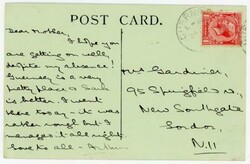 POST CARD.
Dear Mother,
I hope you
are getting on well
despite my absence!
Guernsey is a very
pretty place & Sark
is better. I went
there today - it was
rather rough but I
managed all right
love to all - Arthur
Mrs Gardiner,
95 Springfield
New Southgate
London
N.11